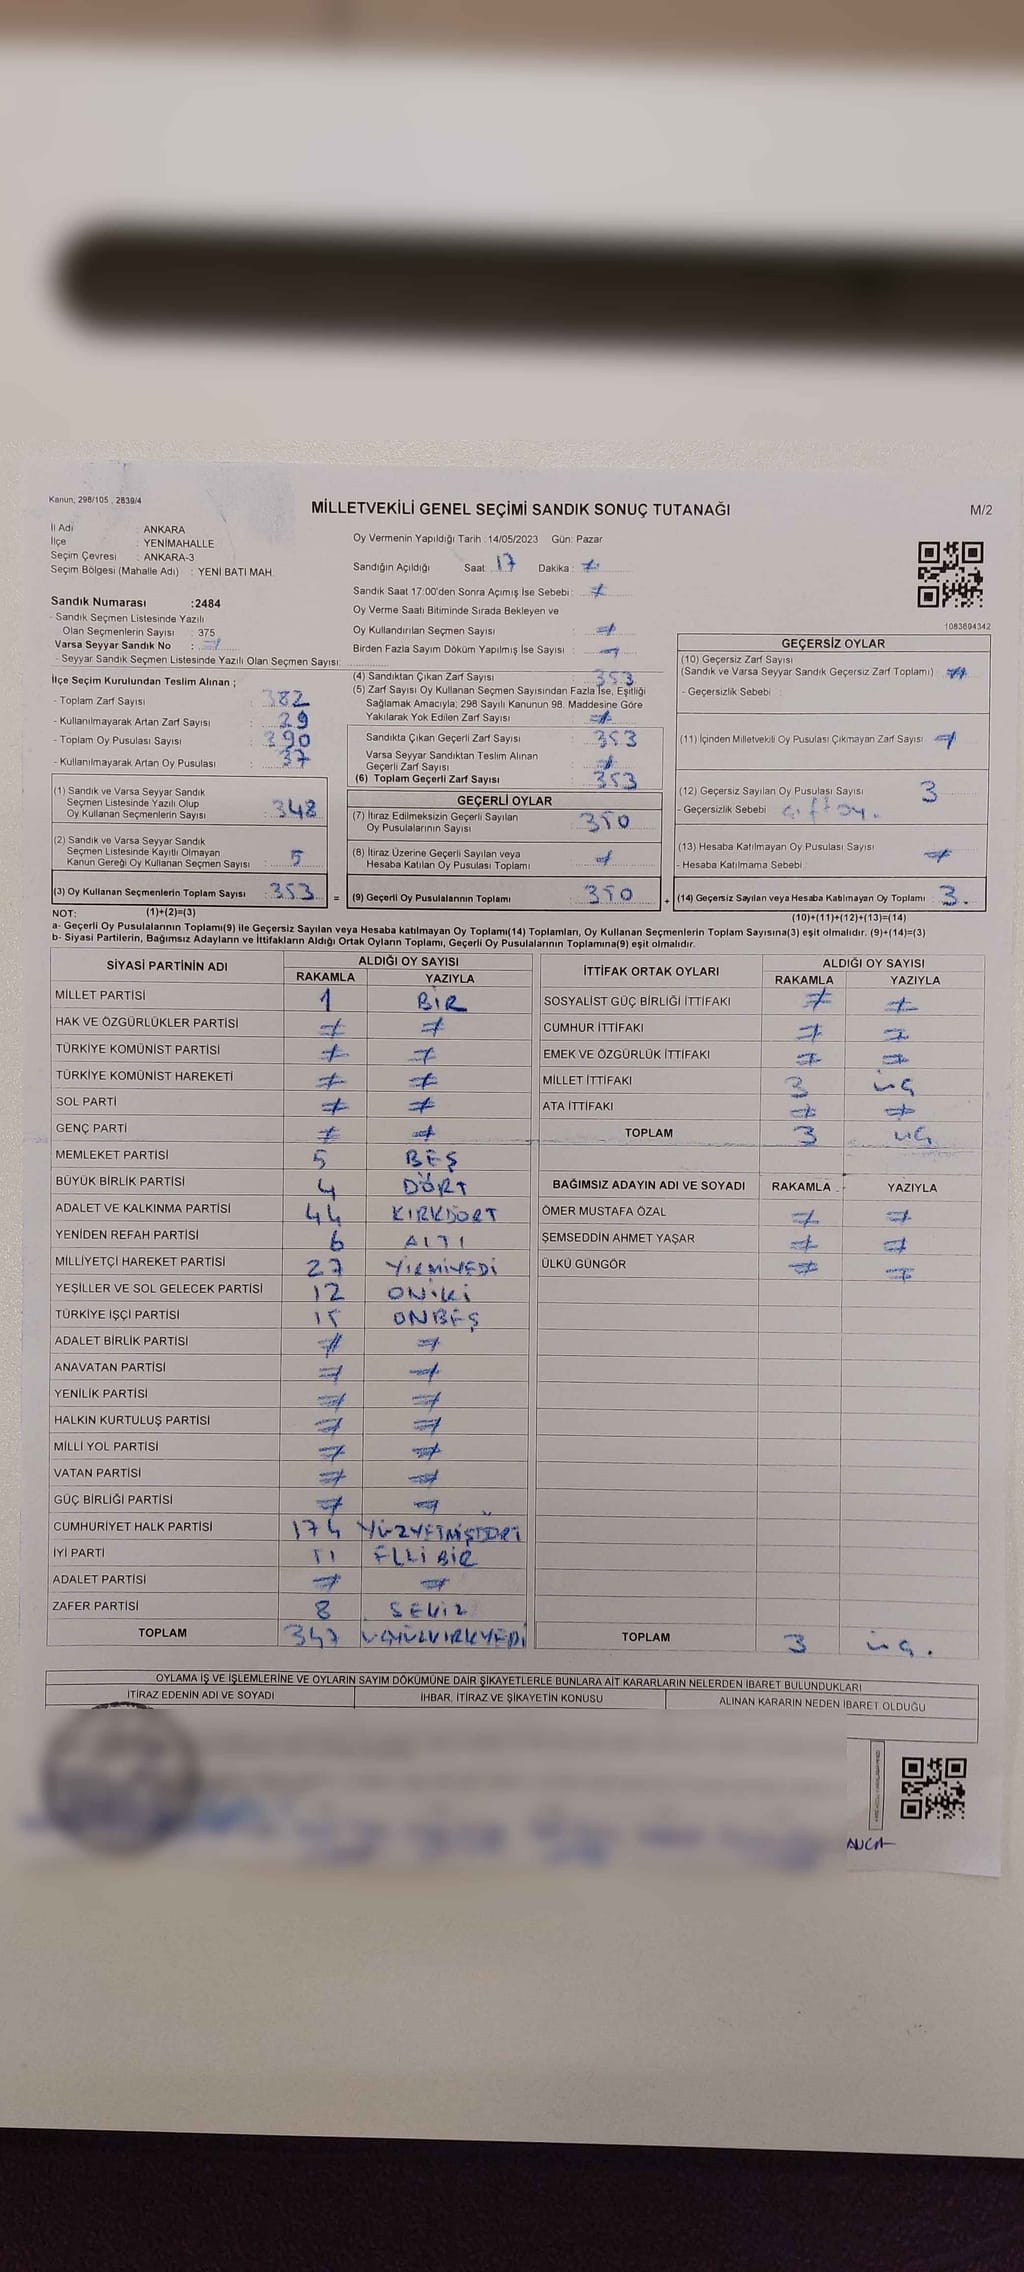 Kanun; 298/105 , 2839/4
MİLLETVEKİLİ GENEL SEÇİMİ SANDIK SONUÇ TUTANAĞI
M/2
İl Adı : ANKARA
İlçe : YENİMAHALLE
Seçim Çevresi : ANKARA-3
Seçim Bölgesi (Mahalle Adı) : YENİ BATI MAH.
Sandık Numarası :2484
- Sandık Seçmen Listesinde Yazılı
Olan Seçmenlerin Sayısı : 375
Varsa Seyyar Sandık No :
- Seyyar Sandık Seçmen Listesinde Yazılı Olan Seçmen Sayısı:
Oy Vermenin Yapıldığı Tarih : 14/05/2023 Gün: Pazar
Sandığın Açıldığı Saat: 17 Dakika :
Sandık Saat 17:00'den Sonra Açımış İse Sebebi :
Oy Verme Saati Bitiminde Sırada Bekleyen ve
Oy Kullandırılan Seçmen Sayısı :
Birden Fazla Sayım Döküm Yapılmış İse Sayısı :
1083694342
İlçe Seçim Kurulundan Teslim Alınan ;
- Toplam Zarf Sayısı : 382
- Kullanılmayarak Artan Zarf Sayısı : 29
- Toplam Oy Pusulası Sayısı : 390
- Kullanılmayarak Artan Oy Pusulası : 37
(1) Sandık ve Varsa Seyyar Sandık
Seçmen Listesinde Yazılı Olup
Oy Kullanan Seçmenlerin Sayısı : 348
(2) Sandık ve Varsa Seyyar Sandık
Seçmen Listesinde Kayıtlı Olmayan
Kanun Gereği Oy Kullanan Seçmen Sayısı : 5
(3) Oy Kullanan Seçmenlerin Toplam Sayısı : 353 =
(4) Sandıktan Çıkan Zarf Sayısı : 353
(5) Zarf Sayısı Oy Kullanan Seçmen Sayısından Fazla İse, Eşitliği
Sağlamak Amacıyla; 298 Sayılı Kanunun 98. Maddesine Göre
Yakılarak Yok Edilen Zarf Sayısı :
Sandıkta Çıkan Geçerli Zarf Sayısı : 353
Varsa Seyyar Sandıktan Teslim Alınan
Geçerli Zarf Sayısı :
(6) Toplam Geçerli Zarf Sayısı : 353
GEÇERLİ OYLAR
(7) İtiraz Edilmeksizin Geçerli Sayılan
Oy Pusulalarının Sayısı : 350
(8) İtiraz Üzerine Geçerli Sayılan veya
Hesaba Katılan Oy Pusulası Toplamı :
(9) Geçerli Oy Pusulalarının Toplamı : 350 +
GEÇERSİZ OYLAR
(10) Geçersiz Zarf Sayısı
(Sandık ve Varsa Seyyar Sandık Geçersiz Zarf Toplamı) :
- Geçersizlik Sebebi :
(11) İçinden Milletvekili Oy Pusulası Çıkmayan Zarf Sayısı :
(12) Geçersiz Sayılan Oy Pusulası Sayısı : 3
- Geçersizlik Sebebi : çift oy.
(13) Hesaba Katılmayan Oy Pusulası Sayısı :
- Hesaba Katılmama Sebebi :
(14) Geçersiz Sayılan veya Hesaba Katılmayan Oy Toplamı : 3.
NOT: (1)+(2)=(3) (10)+(11)+(12)+(13)=(14)
a- Geçerli Oy Pusulalarının Toplamı(9) ile Geçersiz Sayılan veya Hesaba katılmayan Oy Toplamı(14) Toplamları, Oy Kullanan Seçmenlerin Toplam Sayısına(3) eşit olmalıdır. (9)+(14)=(3)
b- Siyasi Partilerin, Bağımsız Adayların ve İttifakların Aldığı Ortak Oyların Toplamı, Geçerli Oy Pusulalarının Toplamına(9) eşit olmalıdır.
SİYASİ PARTİNİN ADI ALDIĞI OY SAYISI
RAKAMLA YAZIYLA
MİLLET PARTİSİ 1 BİR
HAK VE ÖZGÜRLÜKLER PARTİSİ
TÜRKİYE KOMÜNİST PARTİSİ
TÜRKİYE KOMÜNİST HAREKETİ
SOL PARTİ
GENÇ PARTİ
MEMLEKET PARTİSİ 5 BEŞ
BÜYÜK BİRLİK PARTİSİ 4 DÖRT
ADALET VE KALKINMA PARTİSİ 44 KIRKDÖRT
YENİDEN REFAH PARTİSİ 6 ALTI
MİLLİYETÇİ HAREKET PARTİSİ 27 YİRMİYEDİ
YEŞİLLER VE SOL GELECEK PARTİSİ 12 ONİKİ
TÜRKİYE İŞÇİ PARTİSİ 15 ONBEŞ
ADALET BİRLİK PARTİSİ
ANAVATAN PARTİSİ
YENİLİK PARTİSİ
HALKIN KURTULUŞ PARTİSİ
MİLLİ YOL PARTİSİ
VATAN PARTİSİ
GÜÇ BİRLİĞİ PARTİSİ
CUMHURİYET HALK PARTİSİ 174 YÜZYETMİŞDÖRT
İYİ PARTİ 51 ELLİ BİR
ADALET PARTİSİ
ZAFER PARTİSİ 8 SEKİZ
TOPLAM 347 ÜÇYÜZKIRKYEDİ
İTTİFAK ORTAK OYLARI ALDIĞI OY SAYISI
RAKAMLA YAZIYLA
SOSYALİST GÜÇ BİRLİĞİ İTTİFAKI
CUMHUR İTTİFAKI
EMEK VE ÖZGÜRLÜK İTTİFAKI
MİLLET İTTİFAKI 3 üç
ATA İTTİFAKI
TOPLAM 3 üç
BAĞIMSIZ ADAYIN ADI VE SOYADI RAKAMLA YAZIYLA
ÖMER MUSTAFA ÖZAL
ŞEMSEDDİN AHMET YAŞAR
ÜLKÜ GÜNGÖR
TOPLAM 3 üç.
OYLAMA İŞ VE İŞLEMLERİNE VE OYLARIN SAYIM DÖKÜMÜNE DAİR ŞİKAYETLERLE BUNLARA AİT KARARLARIN NELERDEN İBARET BULUNDUKLARI
İTİRAZ EDENİN ADI VE SOYADI İHBAR, İTİRAZ VE ŞİKAYETİN KONUSU ALINAN KARARIN NEDEN İBARET OLDUĞU